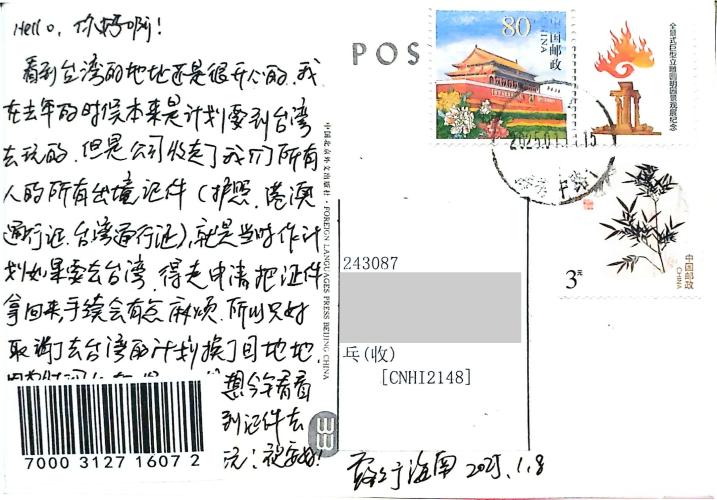 Hello，你好啊！
看到台湾的地址还是很开心的，我
在去年的时候本来是计划要到台湾
去玩的，但是公司收走了我们所有
人的所有出境证件（护照、港澳
通行证、台湾通行证），就是当时作计
划如果要去台湾，得走申请把证件
拿回来，手续会有点麻烦，所以只好
取消了去台湾的计划换了目地地，
想今年看看
到证件去
玩！祝安好！
7000 3127 1607 2
中国北京外文出版社·FOREIGN LANGUAGES PRESS BEIJING CHINA
POS
80
中国邮政
CHINA
全景式巨型立雕圆明园景观展纪念
2025.01.
3元
中国邮政
CHINA
243087
乓(收)
[CNHI2148]
于海南 2025.1.8